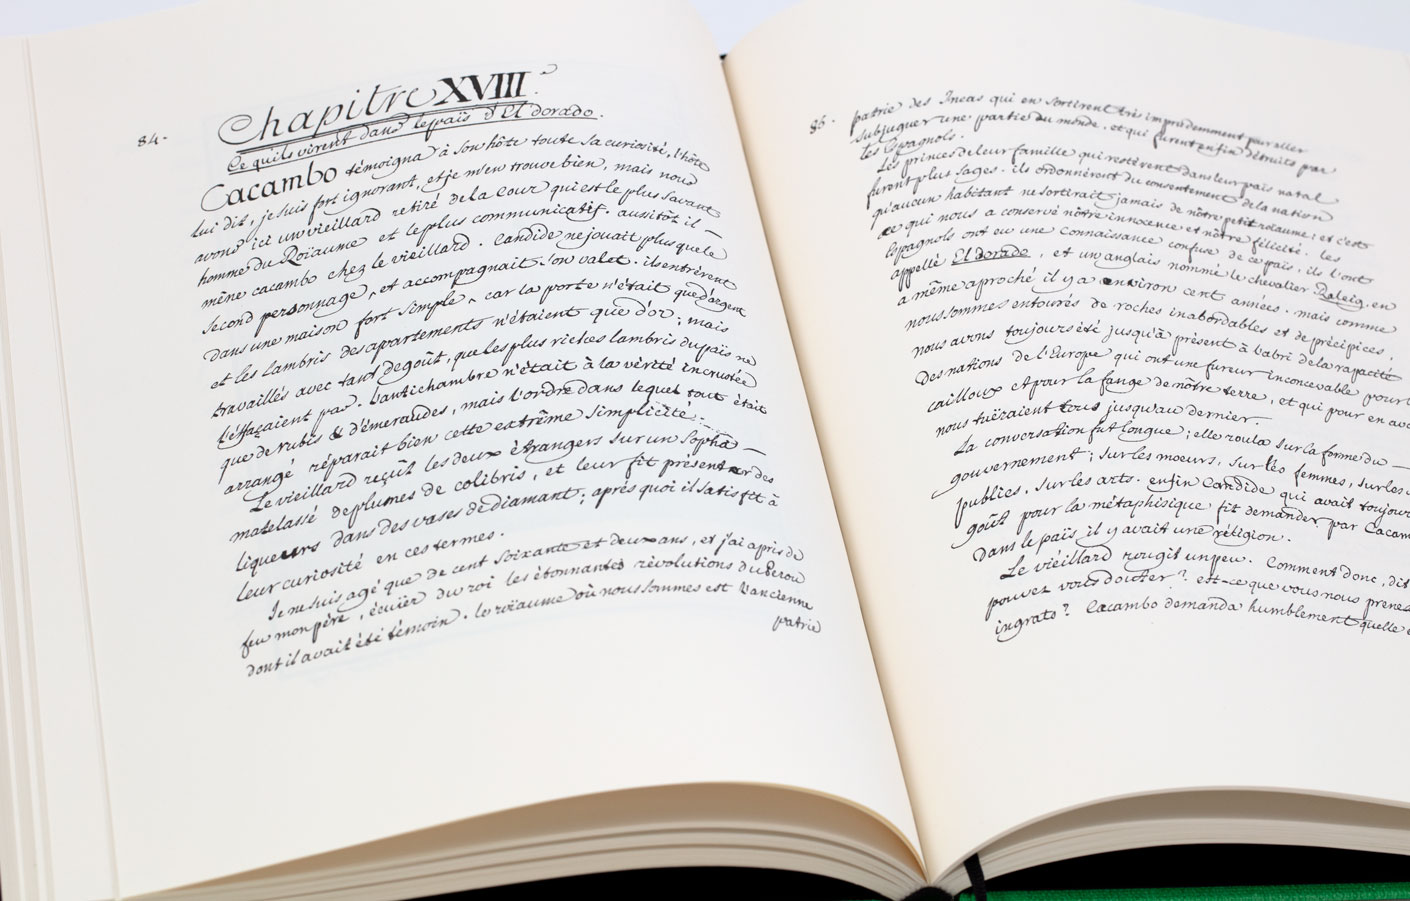 84.
Chapitre XVIII.
Ce qu'ils virent dans le païs d'El dorado.
Cacambo témoigna à son hôte toute sa curiosité, l'hôte
lui dit, je suis fort ignorant, et je m'en trouve bien, mais nous
avons ici un vieillard retiré de la Cour qui est le plus savant
homme du Roïaume et le plus communicatif. aussitôt il
mène cacambo chez le vieillard. Candide ne jouait plus que le
second personnage, et accompagnait son valet. ils entrèrent
dans une maison fort simple, car la porte n'était que d'argent
et les lambris des apartements n'étaient que d'or; mais
travaillés avec tant de goût, que les plus riches lambris du païs ne
l'effaçaient pas. L'antichambre n'était à la vérité incrustée
que de rubis & d'émeraudes, mais l'ordre dans lequel tout était
arrangé, réparait bien cette extrême simplicité.
Le vieillard reçût les deux étrangers sur un sopha
matelassé de plumes de colibris, et leur fit présenter des
liqueurs dans des vases de diamant; après quoi il satisfit à
leur curiosité en ces termes.
Je ne suis agé que de cent soixante et deux ans, et j'ai apris de
feu mon père, écuïer du roi les étonnantes révolutions du Perou
dont il avait été témoin. le roïaume où nous sommes est l'ancienne
patrie
85.
patrie des Incas qui en sortirent très imprudemment pour aller
subjuguer une partie du monde. et qui furent enfin détruits par
les Espagnols.
Les princes de leur famille qui restèrent dans leur païs natal
furent plus sages. ils ordonnèrent du consentement de la nation
qu'aucun habitant ne sortirait jamais de nôtre petit roïaume; et c'est
ce qui nous a conservé nôtre innocence et nôtre félicité. les
Espagnols ont eu une connaissance confuse de ce païs, ils l'ont
appellé El dorado, et un anglais nommé le chevalier Raleig, en
a même aproché il y a environ cent années. mais comme
nous sommes entourés de roches inabordables et de précipices,
nous avons toujours été jusqu'à présent à l'abri de la rapacité
des nations de l'Europe qui ont une fureur inconcevable pour
cailloux et pour la fange de nôtre terre, et qui pour en
nous tüeraient tous jusqu'au dernier.
La conversation fut longue; elle roula sur la forme du
gouvernement; sur les moeurs, sur les femmes, sur les
publics, sur les arts. enfin Candide qui avait toujours
goût pour la métaphisique fit demander par
Dans le païs il y avait une réligion.
Le vieillard rougit un peu. Comment donc, dit
pouvez vous douter? est-ce que vous nous
ingrats? Cacambo demanda humblement quelle